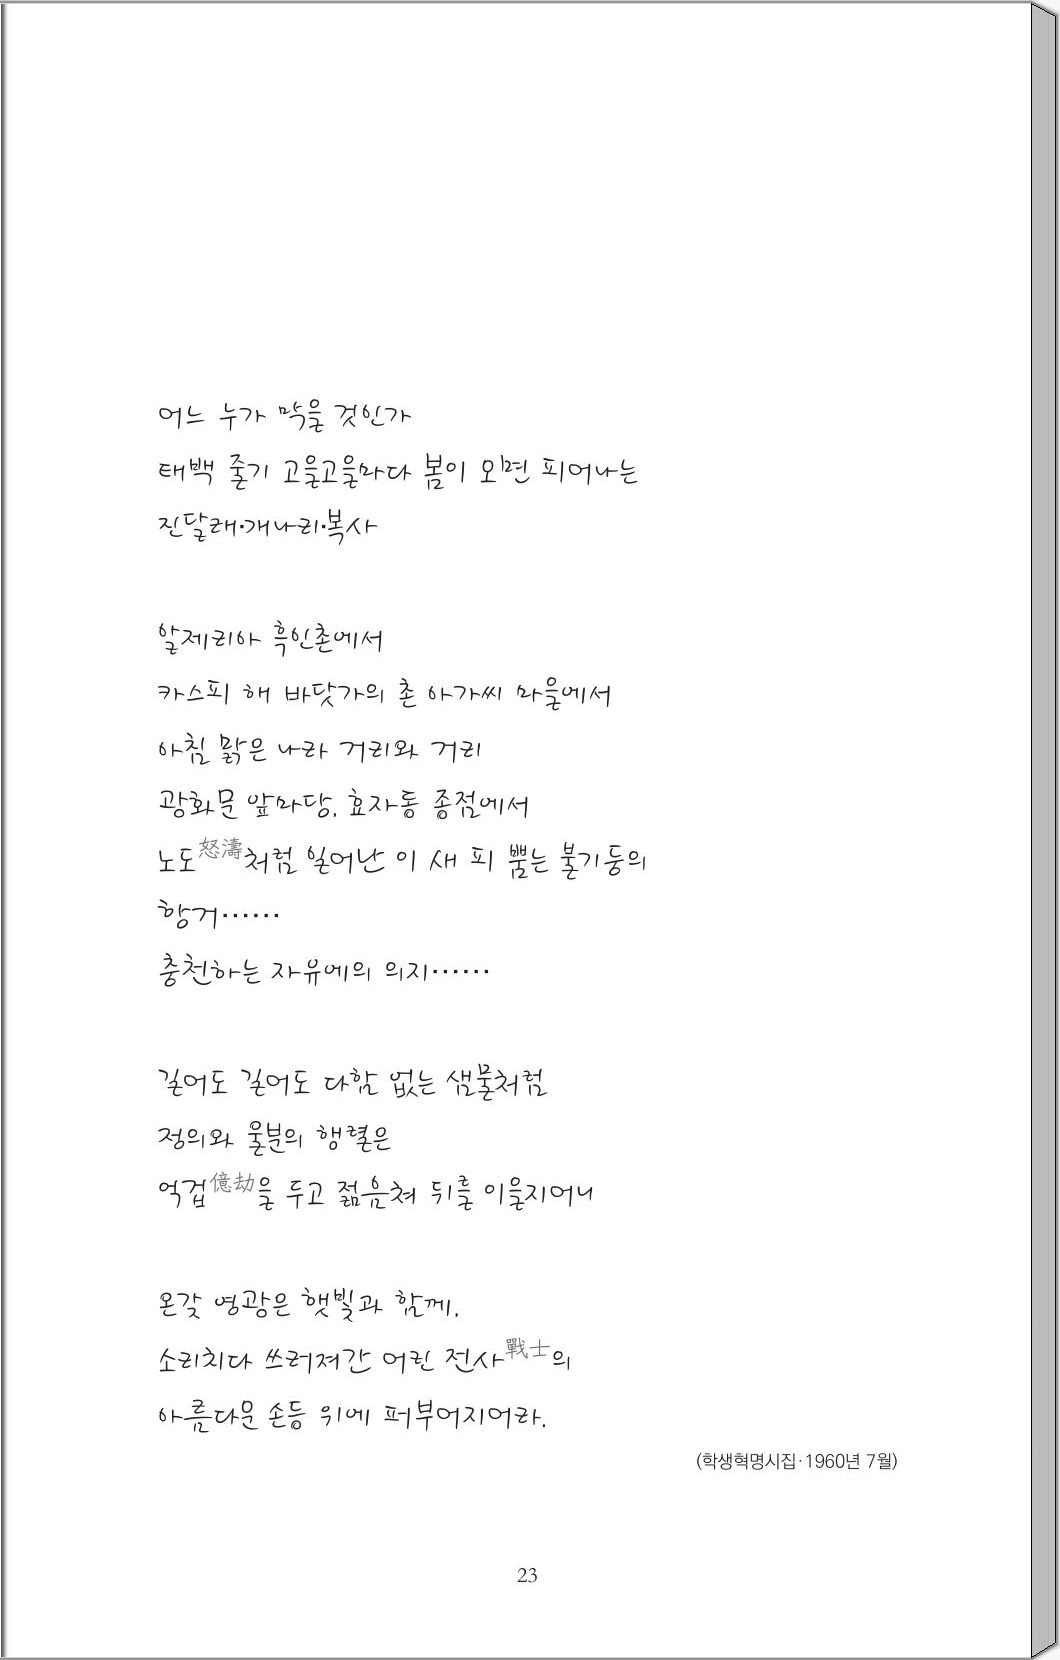 어느 누가 막을 것인가
태백 줄기 고을고을마다 봄이 오면 피어나는
진달래·개나리·복사
알제리아 흑인촌에서
카스피 해 바닷가의 촌 아가씨 마을에서
아침 맑은 나라 거리와 거리
광화문 앞마당, 효자동 종점에서
노도怒濤처럼 일어난 이 새 피 뿜는 불기둥의
항거……
충천하는 자유에의 의지……
길어도 길어도 다함 없는 샘물처럼
정의와 울분의 행렬은
억겁億劫을 두고 젊음쳐 뒤를 이을지어니
온갖 영광은 햇빛과 함께,
소리치다 쓰러져간 어린 전사戰士의
아름다운 손등 위에 퍼부어지어라.
(학생혁명시집·1960년 7월)
23